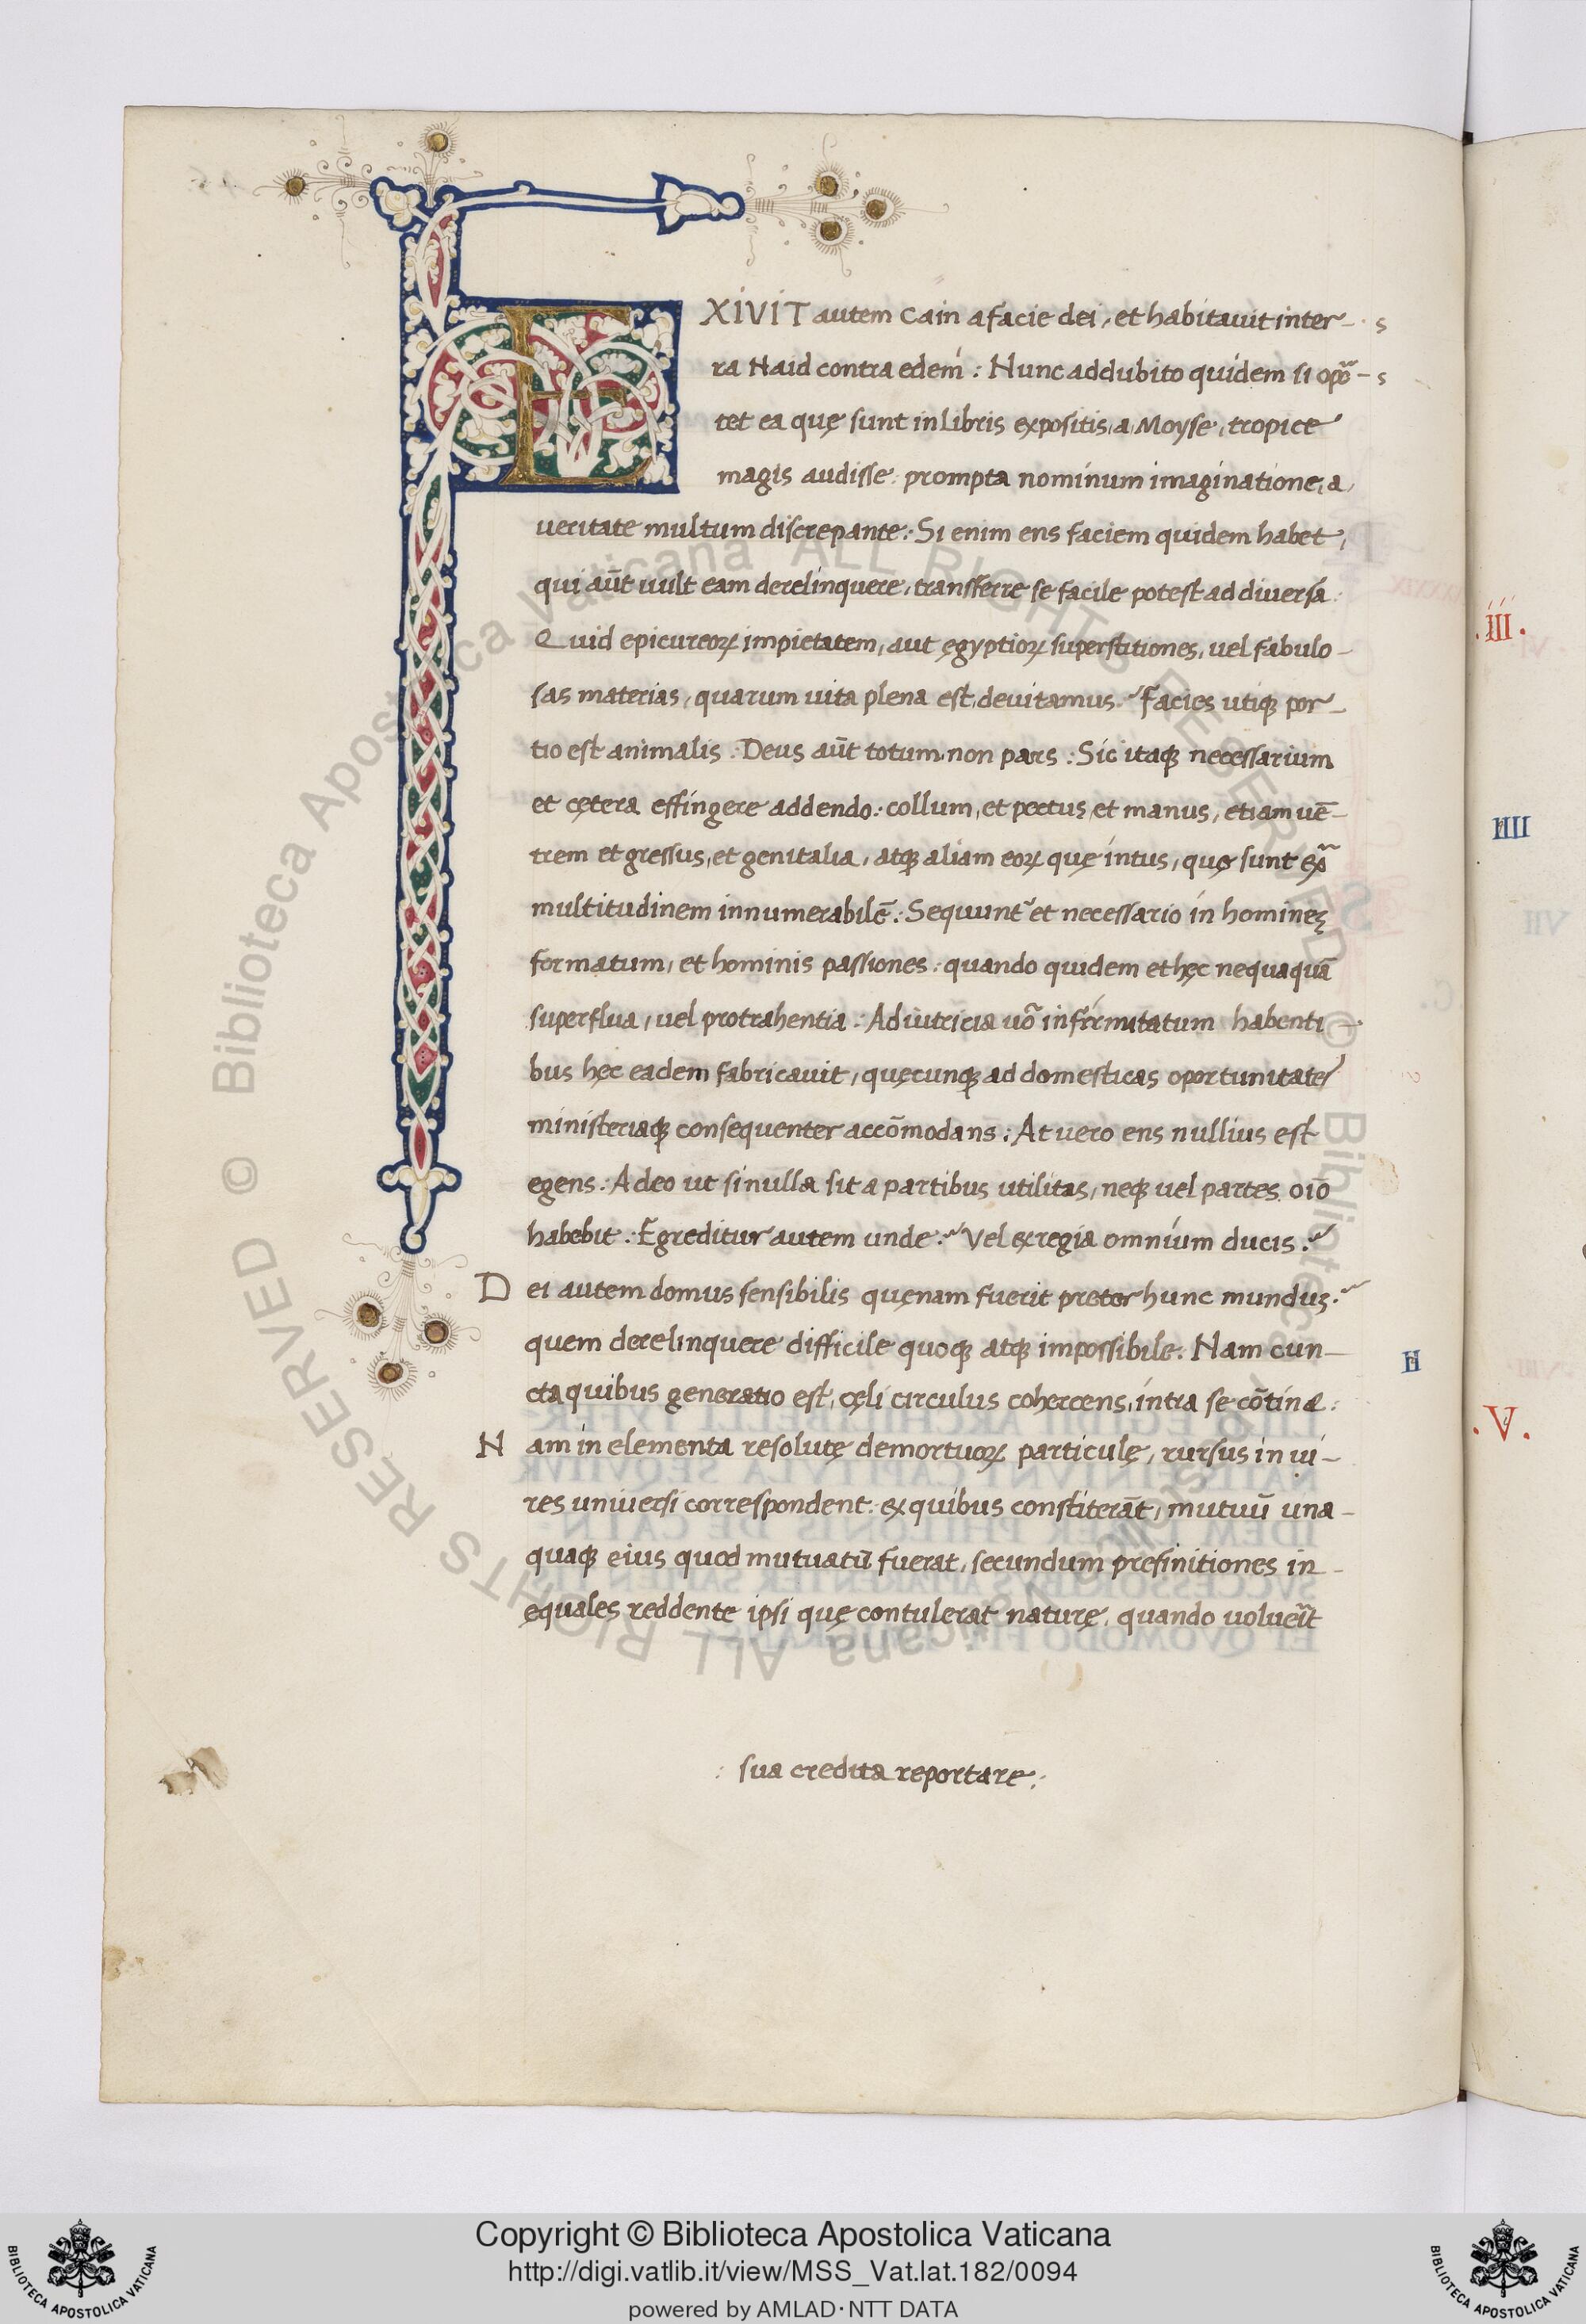 EXIVIT autem Cain a facie dei, et habitauit in ter- s
ra Naid contra edem: Nunc addubito quidem si opo͂- s
tet ea quę sunt in libris expositis, a Moyse, tropice
magis audisse: prompta nominum imaginatione, a,
ueritate multum discrepante: Si enim ens faciem quidem habet,
qui aūt uult eam derelinquere, transferre se facile potest ad diuersa:
Quid epicureoꝝ impietatem, aut ęgyptioꝝ superstitiones, uel fabulo-
sas materias, quarum uita plena est, deuitamus: Facies utiqꝫ por-
tio est animalis: Deus aūt totum non pars: Sic itaqꝫ necessarium
et cętera effingere addendo: collum, et pectus, et manus, etiam uē-
trem et gressus, et genitalia, atqꝫ aliam eoꝝ quę intus, quę sunt ex͂
multitudinem innumerabilē: Sequunt᷑ et necessario in homines
formatum, et hominis passiones: quando quidem et hęc nequaquā
superflua, uel protrahentia: Adiutricia uo͂ infirmitatum habenti-
bus hęc eadem fabricauit, quęcunqꝫ ad domesticas oportunitates
ministeriaqꝫ consequenter accōmodans: At uero ens nullius est
egens: Adeo ut si nulla sit a partibus utilitas, neqꝫ uel partes oīo
habebit: Egreditur autem unde: Vel ex regia omnium ducis:
Dei autem domus sensibilis quęnam fuerit preter hunc mundus:
quem derelinquere difficile quoqꝫ atqꝫ impossibile: Nam cun-
cta quibus generatio est, cęli circulus cohercens, intra se cōtinet:
Nam in elementa resolutę demortuoꝝ particulę, rursus in ui-
res uniuersi correspondent: ex quibus constiterāt, mutuū una-
quaqꝫ eius quod mutuatū fuerat, secundum prefinitiones in-
ęquales reddente ipsi quę contulerat naturę, quando uolueīt
: sua credita reportare:
.III.
IIII
H
.V.
© Biblioteca Apostolica Vaticana ALL RIGHTS RESERVED © Biblioteca Apostolica Vaticana ALL RIGHTS RESERVED
Copyright © Biblioteca Apostolica Vaticana
http://digi.vatlib.it/view/MSS_Vat.lat.182/0094
powered by AMLAD·NTT DATA
BIBLIOTECA APOSTOLICA VATICANA
BIBLIOTECA APOSTOLICA VATICANA